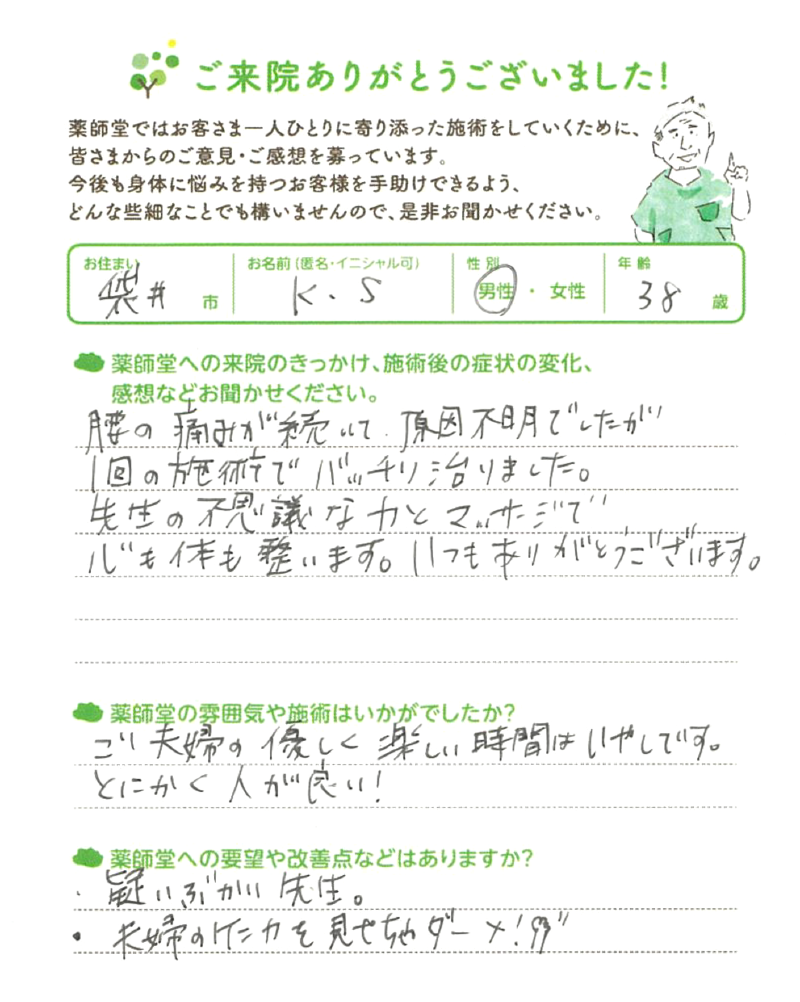 ご来院ありがとうございました!
薬師堂ではお客さま一人ひとりに寄り添った施術をしていくために、
皆さまからのご意見・ご感想を募っています。
今後も身体に悩みを持つお客様を手助けできるよう、
どんな些細なことでも構いませんので、是非お聞かせください。
お住まい お名前(匿名・イニシャル可) 性別 年齢
袋井 市 K.S 男性 ・ 女性 38 歳
薬師堂への来院のきっかけ、施術後の症状の変化、
感想などお聞かせください。
腰の痛みが続いて.原因不明でしたが
1回の施術でバッチリ治りました。
先生の不思議な力とマッサージで
心も体も整います。いつもありがとうございます。
薬師堂の雰囲気や施術はいかがでしたか?
ご夫婦の優しく楽しい時間はいやしです。
とにかく人が良い!
薬師堂への要望や改善点などはありますか?
・疑いぶかい先生。
・夫婦のケンカを見せちゃダーメ!